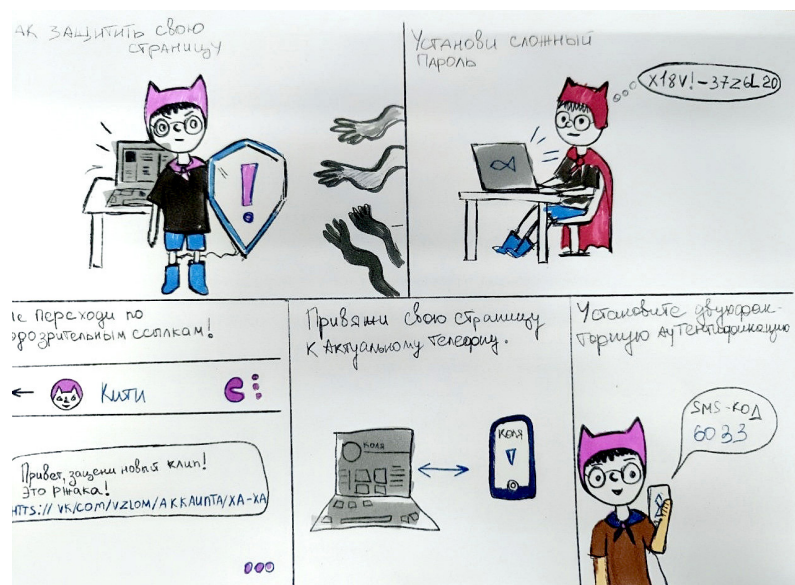 АК ЗАЩИТИТЬ СВОЮ
СТРАНИЦУ
!
УСТАНОВИ СЛОЖНЫЙ
ПАРОЛЬ
X18V!-37Z6L20
Не Переходи по
одозрительным ссылкам!
Кити
Привет, зацени новый клип!
Это ржака!
HTTS://VK/COM/VZLOM/AKKAUNTA/XA-XA
Привяжи свою страницу
к Актуальному телефону.
КОЛЯ
КОЛЯ
Установите двухфак-
торную аутентификацию
SMS-КОД
6033